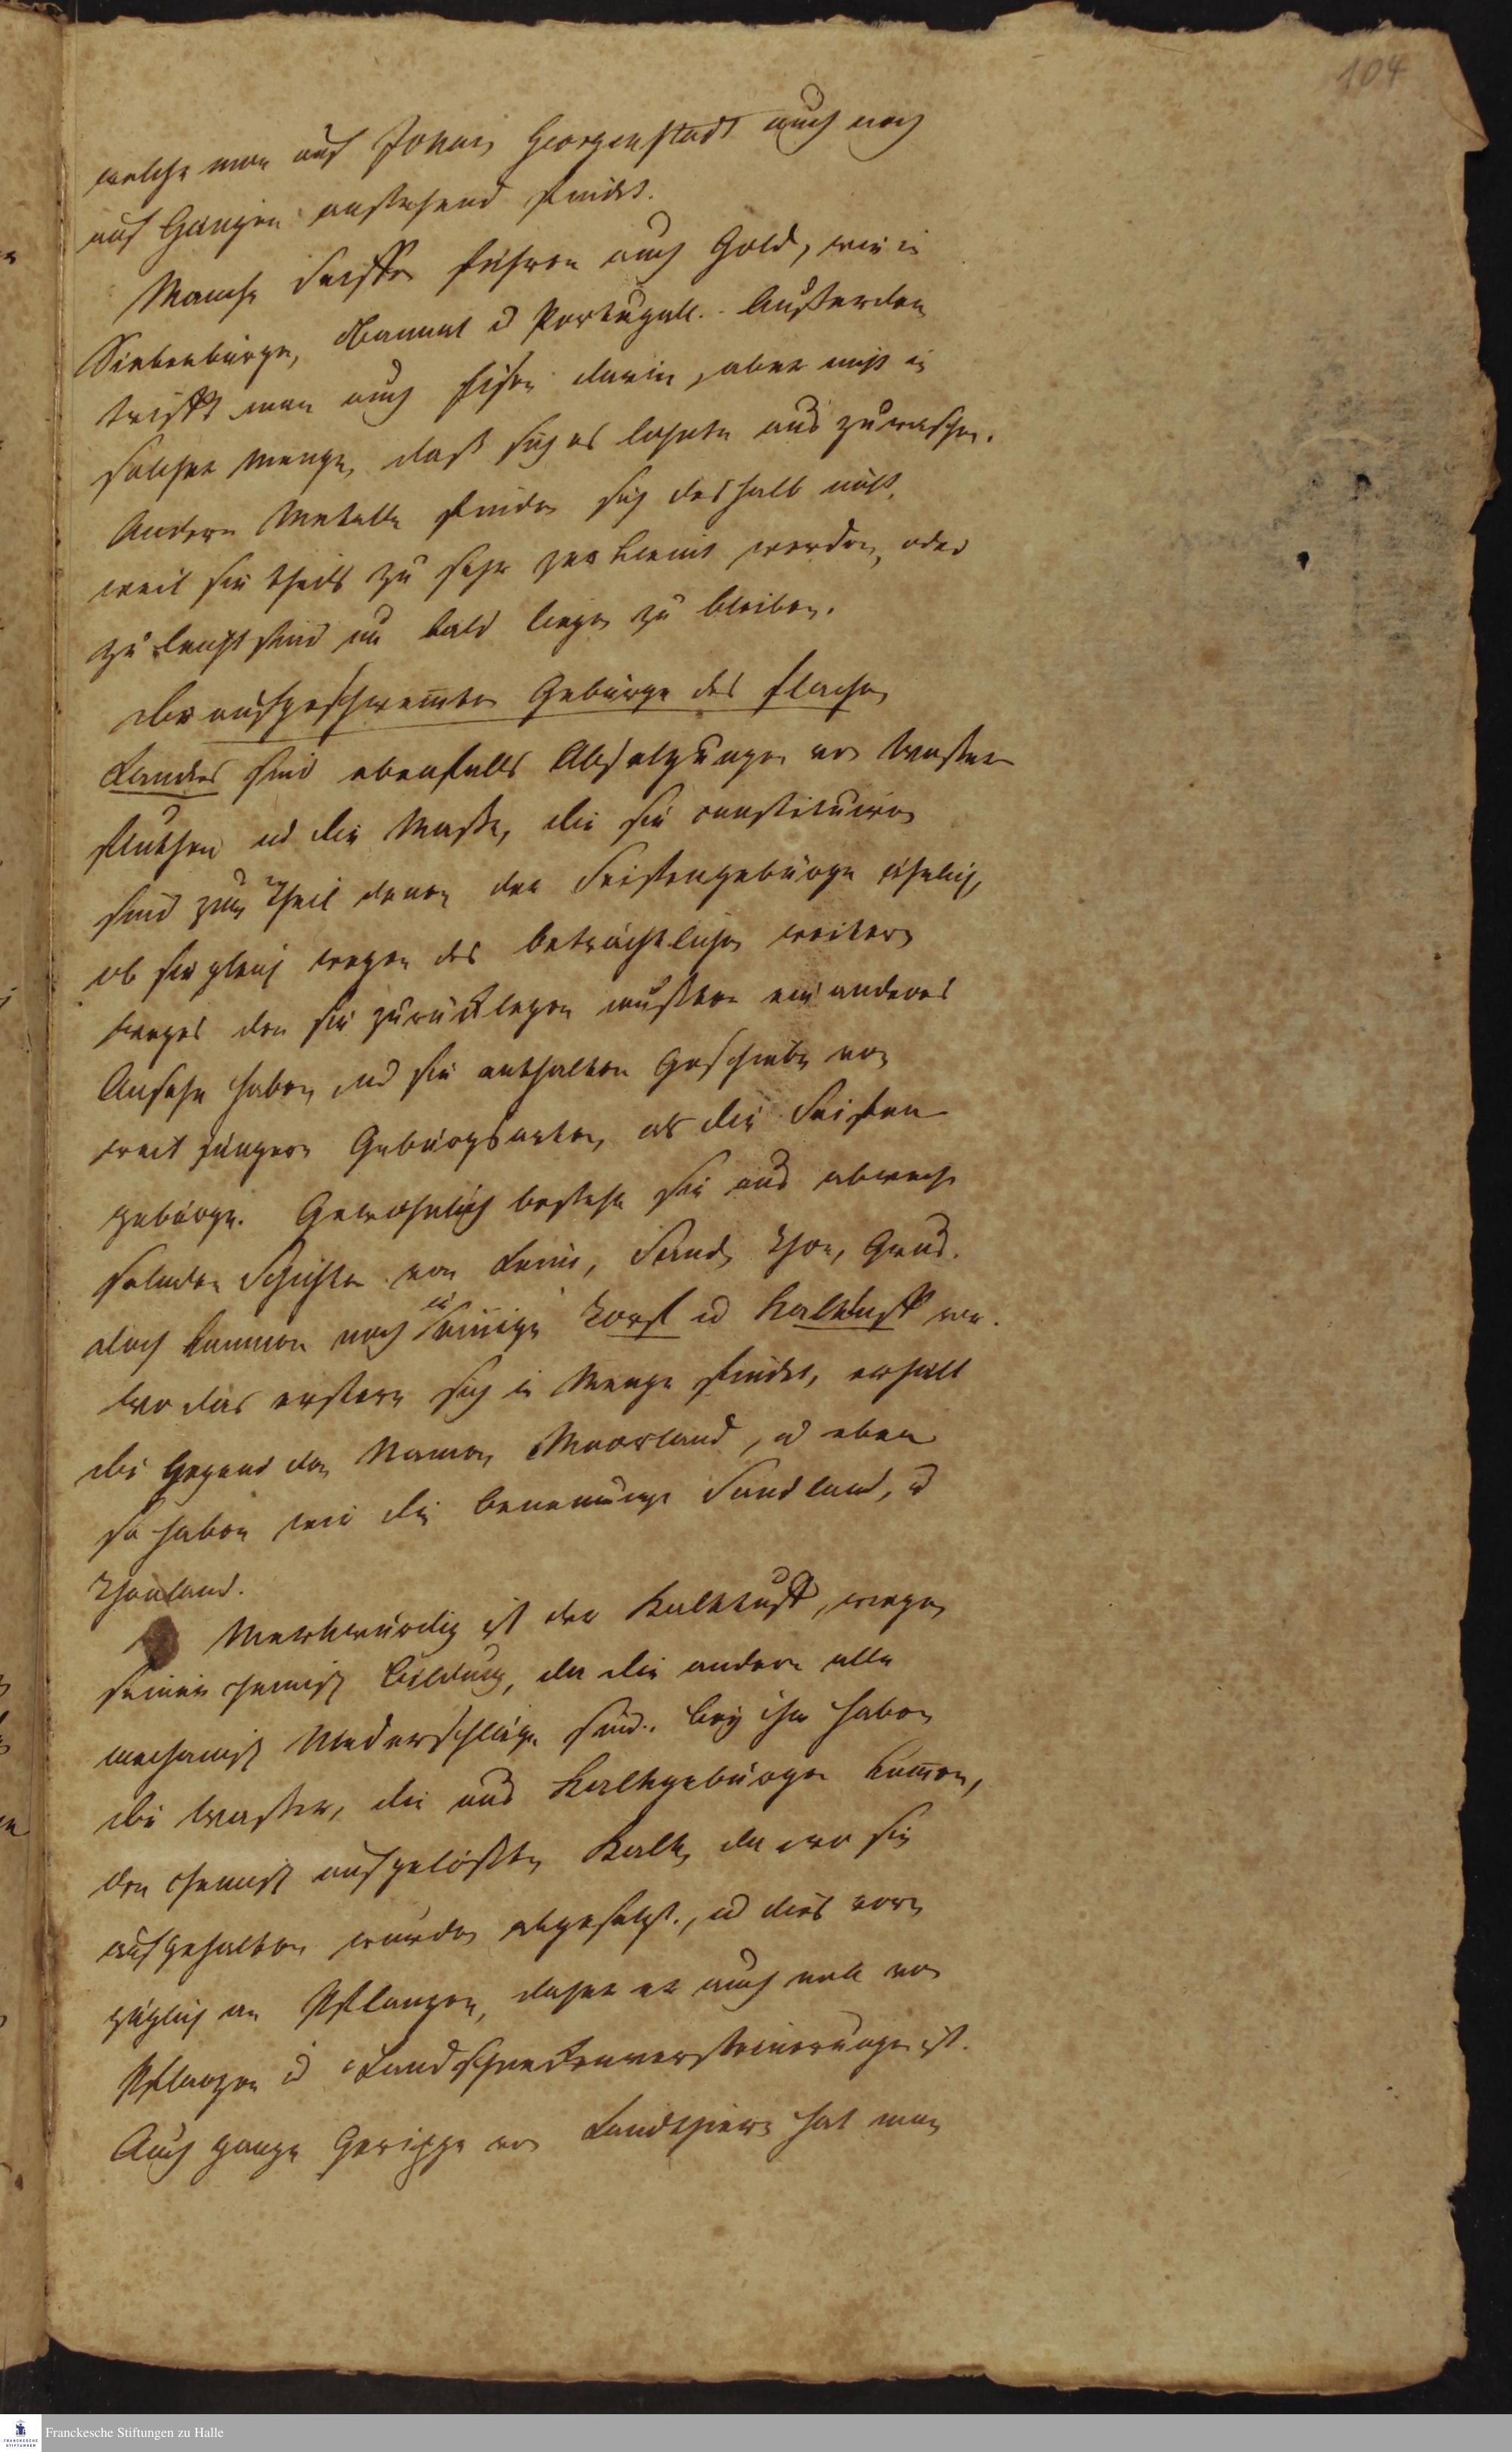 104
welche man auf Johan Georgenstadt auch noch
auf Gängen anstehend findet.
Manche Seiffen führen auch Gold, wie in
Siebenbürgen, Bannat u Portugall. Außerdem
trifft man auch Eisen darin, aber nicht in
solcher Menge, daß sich es lohnte aus zuwaschen.
Andere Metalle finden sich deshalb nicht,
weil sie theils zu sehr zerkleint werden, oder
zu leicht sind um bald liegen zu bleiben.
Die aufgeschwemten Gebürge des flachen
Landes sind ebenfalls Absetzungen von Wasser
fluthen u die Masse, die sie constituiren
sind zum Theil denen der Seifengebürge ähnlich,
ob sie gleich wegen des beträchtlichen weitern
Weges den sie zurücklegen mußten ein anderes
Ansehn haben, und sie enthalten Geschiebe von
weit jüngern Gebürgsarten, als die Seifen
gebürge. Gewöhnlich bestehn sie aus abwech
selnden Schichten von Leim, Sand, Thon, Grus.
doch kommen noch einige Torf u Kalktuff vor.
Wo das erstere sich in Menge findet, erhält
die Gegend den Namen Moorland, u eben
so haben wir die Benennunge Sandland, u
Thonland.
Merkwürdig ist der Kalktuff, wegen
seiner chemisch Bildung, da die andern alle
mechanisch Niederschläge sind. Bey ihm haben
die Wasser, die aus Kalkgebürgen kommen,
den chemisch aufgelößten Kalk, da wo sie
aufgehalten wurden abgesetzt, u dies vor
züglich an Pflanzen, daher er auch voll von
Pflanzen u Landschneckenversteinerungen ist.
Auch ganze Gerippe von Landthiere hat man
Franckesche Stiftungen zu Halle